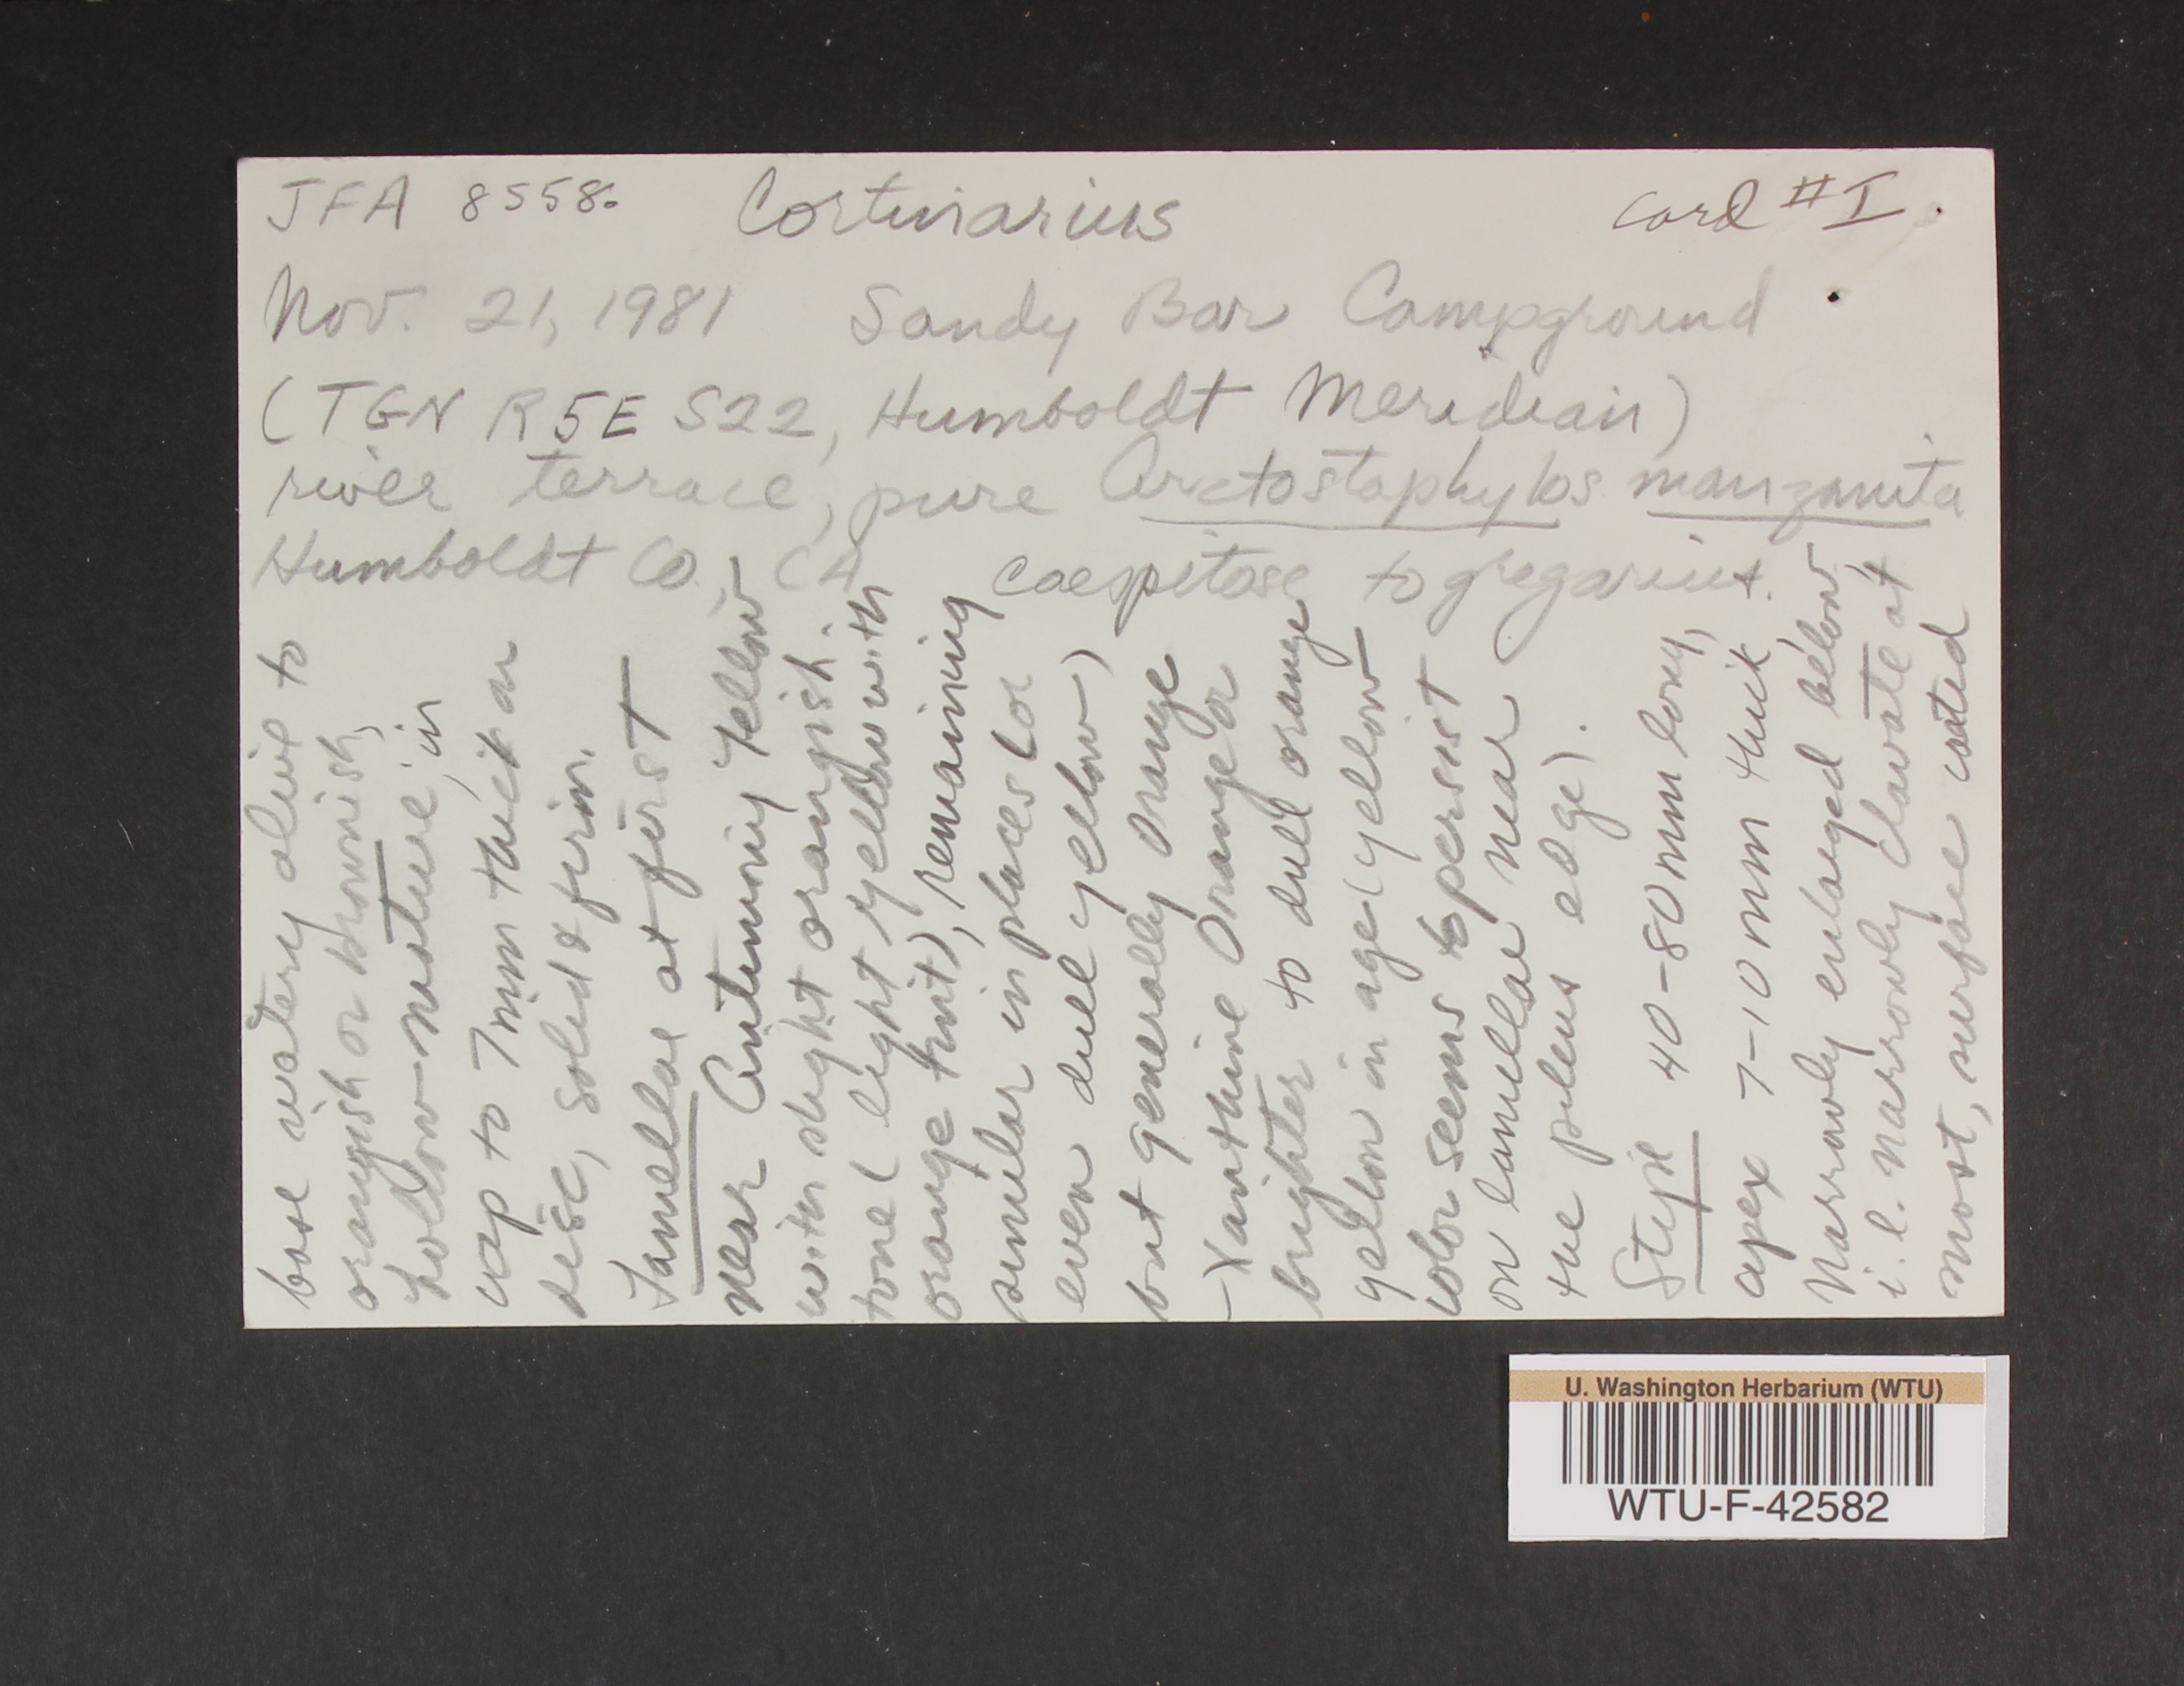 JFA 8558. Cortinarius card #I.
Nov. 21, 1981 Sandy Bar Campground
(TGN R5E S22, Humboldt Meridian)
river terrace, pure Arctostaphylos manzanita
Humboldt Co., CA caespitose to gregarius.
base watery olive to
orangish or brownish,
hollow-nature, in
cap to 7 mm thick on
disc, solid & firm.
Lamellae at first
near Antimony Yellow
with slight orangish
tone (light yellow with
orange tint), remaining
similar in places (or
even dull yellow)
but generally Orange
-Xanthine Orange or
brighter to dull orange
yellow in age (yellow
color seems to persist
on lamellae near
the pileus edge).
Stipe 40-80 mm long,
apex 7-10 mm thick,
narrowly enlarged below
i.e. narrowly clavate at
most, surface coated
U. Washington Herbarium (WTU)
WTU-F-42582